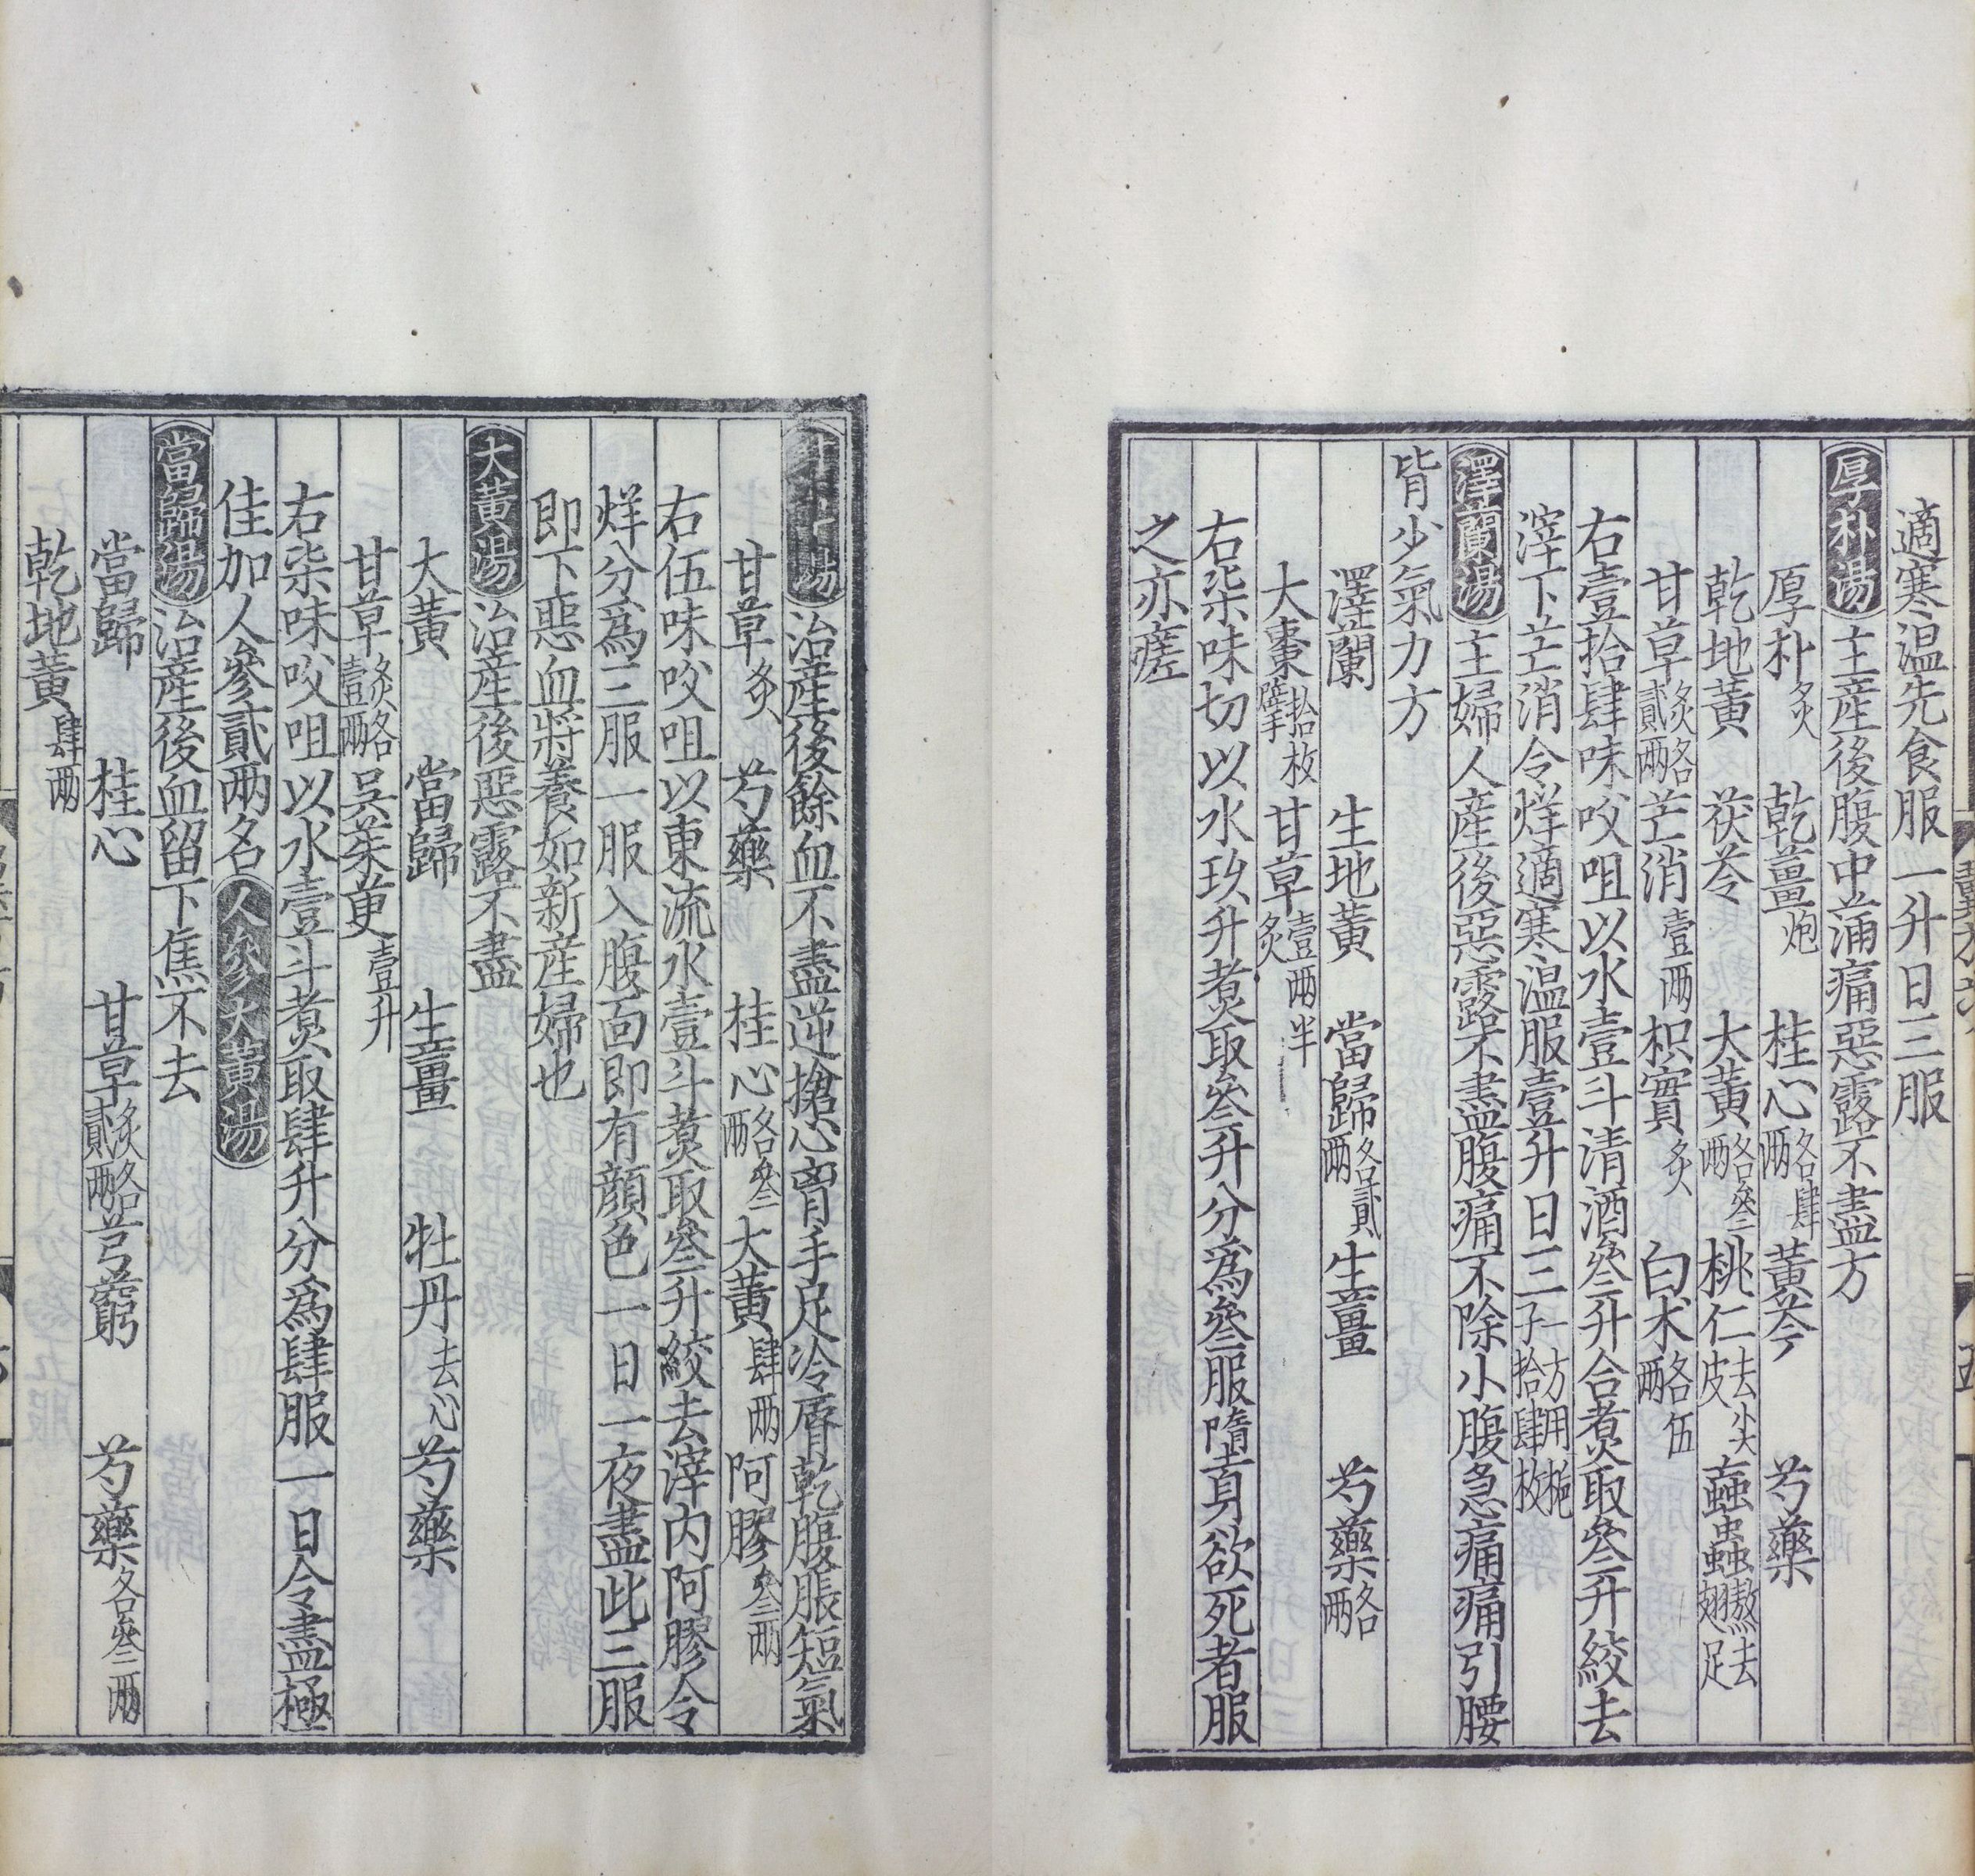 適寒温先食服一升日三服
厚朴湯主産後腹中涌痛惡露不盡方
厚朴炙 乾薑炮 桂心各肆兩 黃芩 芍藥
乾地黃 茯苓 大黃各叄兩 桃仁去皮尖 䖟蟲熬去翅足
甘草炙各貳兩 芒消壹兩 枳實炙 白术各伍兩
右壹拾肆味㕮咀以水壹斗清酒叄升合煮取叄升絞去
滓下芒消令烊適寒温服壹升日三一方用梔子拾肆枚
澤蘭湯主婦人産後惡露不盡腹痛不除小腹急痛痛引腰
背少氣力方
澤蘭 生地黃 當歸各貳兩 生薑 芍藥各兩
大棗拾枚擘 甘草壹兩半炙
右柒味切以水玖升煮取叄升分爲叄服墮身欲死者服
之亦瘥
湯治産後餘血不盡逆搶心胷手足冷脣乾腹脹短氣
甘草炙 芍藥 桂心各叄兩 大黃肆兩 阿膠叄兩
右伍味㕮咀以東流水壹斗煮取叄升絞去滓内阿膠令
烊分爲三服一服入腹面即有顔色一日一夜盡此三服
即下惡血將養如新産婦也
大黃湯治産後惡露不盡
大黃 當歸 生薑 牡丹去心 芍藥
甘草炙各壹兩 吳茱萸壹升
右柒味㕮咀以水壹斗煮取肆升分爲肆服一日令盡極
佳加人參貳兩名人參大黃湯
當歸湯治産後血留下焦不去
當歸 桂心 甘草炙各貳兩 芎藭 芍藥各叄兩
乾地黃肆兩